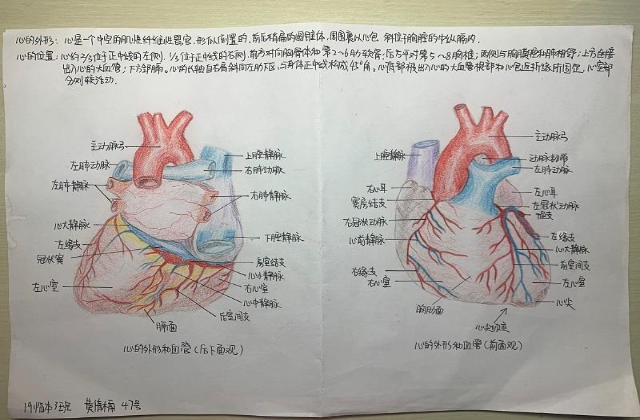 心的外形：心是一个中空的肌性纤维性器官，形似倒置的，前后稍扁的圆锥体，周围裹以心包，斜位于胸腔的中纵隔内。
心的位置：心约2/3位于正中线的左侧，1/3位于正中线的右侧，前方对向胸骨体和第2～6肋软骨；后方平对第5～8胸椎；两侧与胸膜腔和肺相邻；上方连接
出入心的大血管；下方邻膈。心的长轴自右肩斜向左肋下区，与身体正中线构成45°角。心底部被出入心的大血管根部和心包返折缘所固定，心室部
分则较活动。
主动脉弓
左肺动脉
左肺静脉
心大静脉
左缘支
冠状窦
左心室
膈面
上腔静脉
右肺动脉
右肺静脉
下腔静脉
房室结支
心小静脉
右心室
心中静脉
后室间支
心的外形和血管（后下面观）
上腔静脉
右心耳
窦房结支
右冠状动脉
心前静脉
右缘支
右心室
胸肋面
主动脉弓
动脉韧带
左肺动脉
左心耳
左冠状动脉
旋支
左缘支
心大静脉
前室间支
左心室
心尖
心尖切迹
心的外形和血管（前面观）
47号